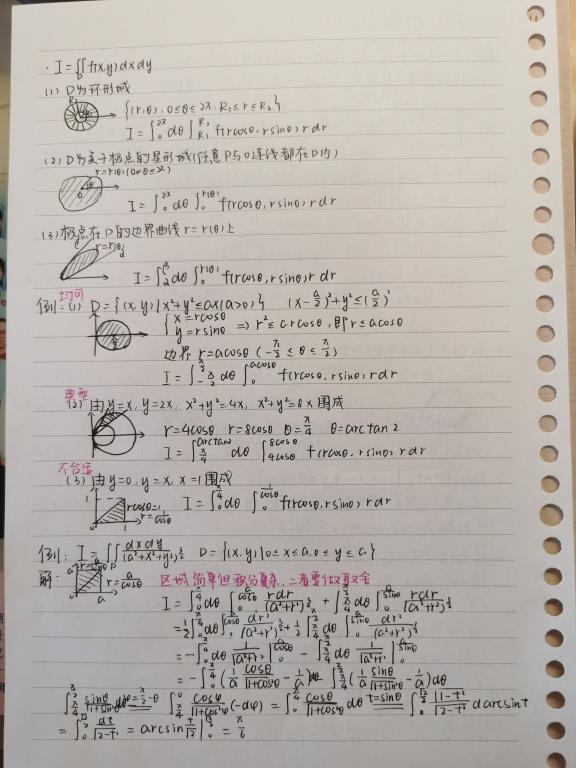 · I = ∬_D f(x,y) dxdy
(1) D为环形域
R₁
{(r,θ), 0≤θ≤2π, R₁≤r≤R₂}
I = ∫₀^{2π} dθ ∫_{R₁}^{R₂} f(rcosθ, rsinθ) r dr
(2) D为关于极点的星形域(任意P与O连线都在D内)
r=r(θ) (0≤θ≤2π)
I = ∫₀^{2π} dθ ∫₀^{r(θ)} f(rcosθ, rsinθ) r dr
(3) 极点在D的边界曲线 r=r(θ)上
r=r(θ)
I = ∫_α^β dθ ∫₀^{r(θ)} f(rcosθ, rsinθ) r dr
均可
例:(1) D={(x,y)|x²+y²≤ax(a>0)} (x-a/2)²+y²≤(a/2)²
{x=rcosθ
y=rsinθ ⇒ r²≤arcosθ, 即r≤acosθ
边界 r=acosθ (-π/2≤θ≤π/2)
I = ∫_{-π/2}^{π/2} dθ ∫₀^{acosθ} f(rcosθ, rsinθ) r dr
典型
(2) 由y=x, y=2x, x²+y²=4x, x²+y²=8x围成
r=4cosθ r=8cosθ θ=π/4 θ=arctan2
I = ∫_{π/4}^{arctan2} dθ ∫_{4cosθ}^{8cosθ} f(rcosθ, rsinθ) r dr
不合适
(3) 由y=0, y=x, x=1围成
1
rcosθ=1
r=1/cosθ
I = ∫₀^{π/4} dθ ∫₀^{1/cosθ} f(rcosθ, rsinθ) r dr
例: I = ∬ dxdy/(a²+x²+y²)^{3/2} D={(x,y)|0≤x≤a, 0≤y≤a}
解:
r=a/cosθ
区域简单但积分复杂, 二者要做取舍
I = ∫₀^{π/4} dθ ∫₀^{a/cosθ} rdr/(a²+r²)^{3/2} + ∫_{π/4}^{π/2} dθ ∫₀^{a/sinθ} rdr/(a²+r²)^{3/2}
= 1/2 ∫₀^{π/4} dθ ∫₀^{a/cosθ} dr²/(a²+r²)^{3/2} + 1/2 ∫_{π/4}^{π/2} dθ ∫₀^{a/sinθ} dr²/(a²+r²)^{3/2}
= -∫₀^{π/4} dθ 1/√(a²+r²) |₀^{a/cosθ} - ∫_{π/4}^{π/2} dθ 1/√(a²+r²) |₀^{a/sinθ}
= -∫₀^{π/4} (1/a cosθ/√(1+cos²θ) - 1/a) dθ - ∫_{π/4}^{π/2} (1/a sinθ/√(1+sin²θ) - 1/a) dθ
∫_{π/4}^{π/2} sinθ/√(1+sin²θ) dθ φ=π/2-θ ∫_{π/4}^0 cosφ/√(1+cos²φ) (-dφ) = ∫₀^{π/4} cosθ/√(1+cos²θ) dθ t=sinθ ∫₀^{√2/2} √(1-t²)/√(2-t²) d arcsint
= ∫₀^{√2/2} dt/√(2-t²) = arcsin t/√2 |₀^{√2/2} = π/6